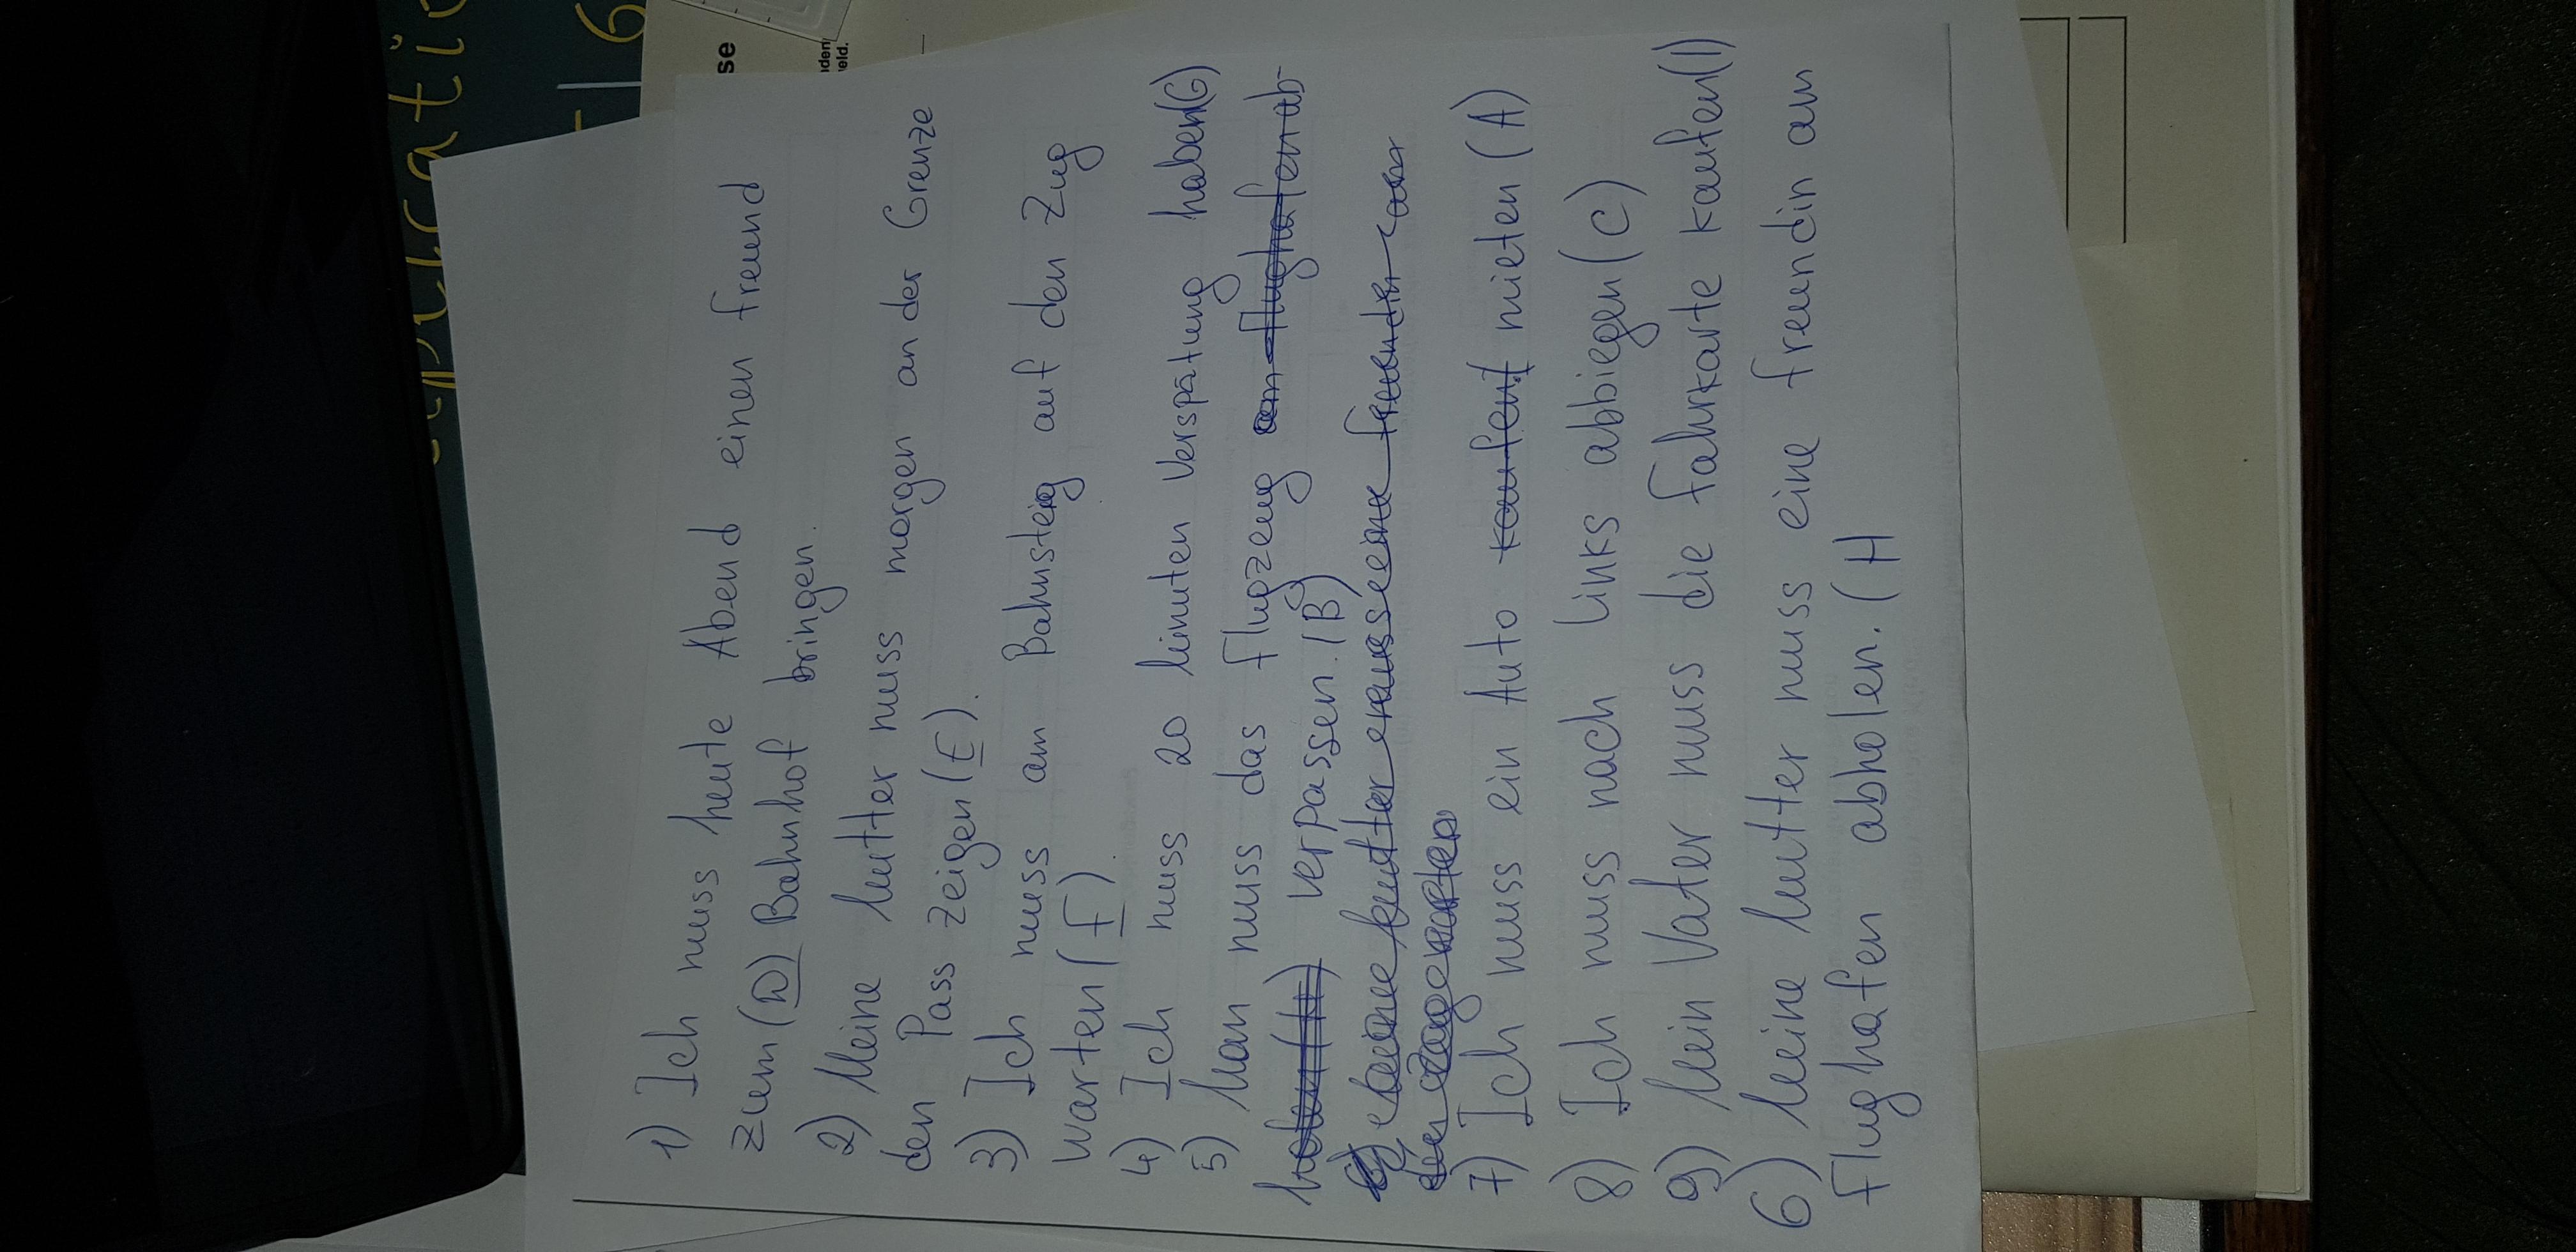 1) Ich muss heute Abend einen freund
zum (D) Bahnhof bringen.
2) Meine Mutter muss morgen an der Grenze
den Pass zeigen (E).
3) Ich muss am Bahnsteig auf den Zug
warten (F).
4) Ich muss 20 Minuten Verspätung haben(G)
5) Man muss das Flugzeug am flughafen ab
holen (H) verpassen. (B)
7) Ich muss ein Auto kaufen mieten (A)
8) Ich muss nach links abbiegen (C)
9) Mein Vater muss die Fahrkarte kaufen(I)
6) Meine Mutter muss eine freundin am
Flughafen abholen. (H
se
iden
eld.
6